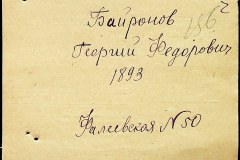 Байронов
156
Георгий Федорович
1893
Фалеевская N 50